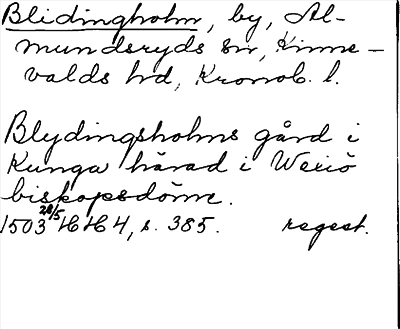 Blidingholm, by, Al-
mundsryds sn, Kinne-
valds hd, Kronob. l.
Blydingsholms gård i
Kunga härad i Wexiö
biskopsdöme.
1503 28/5 HH 4, s. 385. regest.